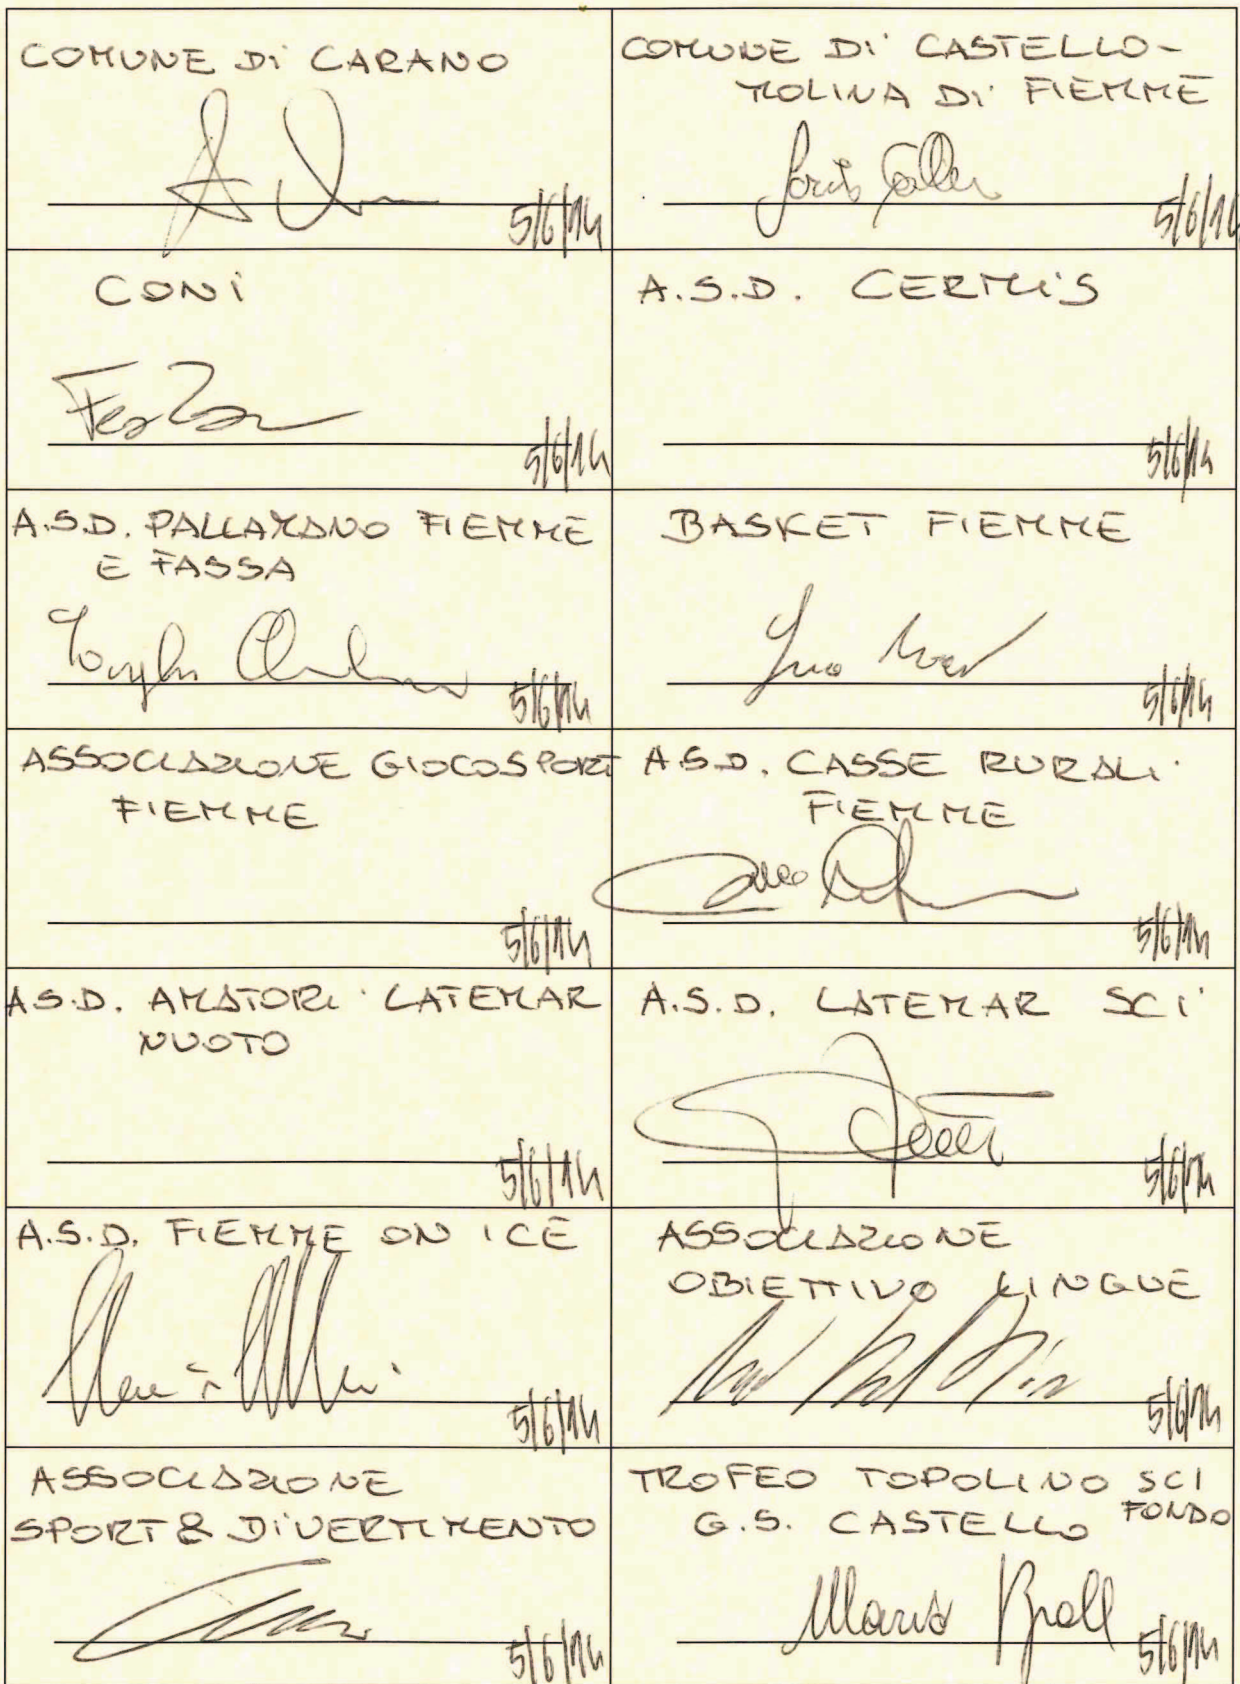 COMUNE DI CARANO
5/6/14
COMUNE DI CASTELLO-
MOLINA DI FIEMME
5/6/14
CONI
5/6/14
A.S.D. CERMIS
5/6/14
A.S.D. PALLAMANO FIEMME
E FASSA
5/6/14
BASKET FIEMME
5/6/14
ASSOCIAZIONE GIOCOSPORT
FIEMME
5/6/14
A.S.D. CASSE RURALI
FIEMME
5/6/14
A.S.D. AMATORI LATEMAR
NUOTO
5/6/14
A.S.D. LATEMAR SCI
5/6/14
A.S.D. FIEMME ON ICE
5/6/14
ASSOCIAZIONE
OBIETTIVO LINGUE
5/6/14
ASSOCIAZIONE
SPORT & DIVERTIMENTO
5/6/14
TROFEO TOPOLINO SCI
FONDO
G.S. CASTELLO
Mario Broll
5/6/14